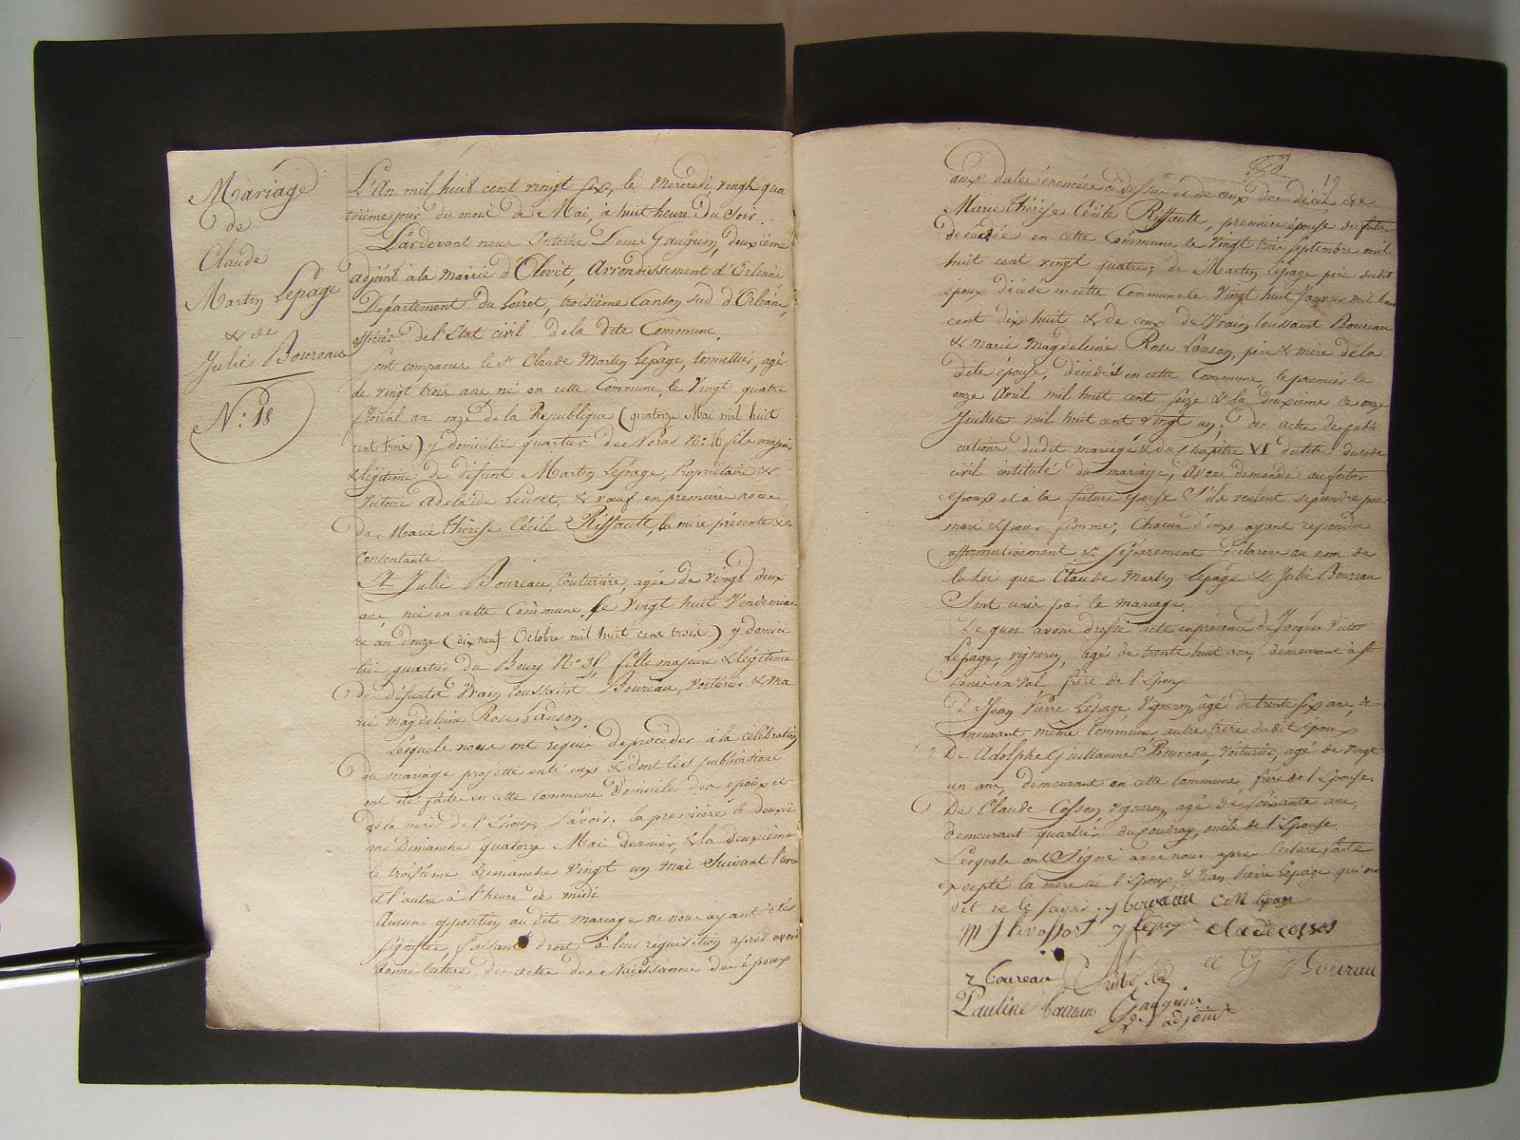 Mariage
de
Claude
Martin Lepage
& de
Julie Boureau
N.° 18
L'An mil huit cent vingt six, le mercredi vingt qua
trieme jour du mois de Mai, à huit heure du soir
Pardevant nous Louis Gauguin, deuxième
adjoint à la mairie d'Olivet, Arrondissement d'Orléans
Département du Loiret, troisième Canton sud d'Orléans,
officier de l'Etat civil de la dite Commune.
Sont comparus le Sr Claude Martin Lepage, tonnellier, agé
de vingt trois ans né en cette Commune, le vingt quatre
floréal an onze de la Republique (quatorze Mai mil huit
cent trois) y domicilié quartier des N° fils majeur
& légitime de défunt Martin Lepage, Propriétaire &
Adelaïde & veuf en premiere noce
de Marie Thérèse Cécile Riffault, la mère présente &
consentante
Et Julie Boureau, couturière, agée de vingt deux
ans, née en cette Commune, le vingt huit Vendemiai
re an douze (dix neuf Octobre mil huit cent trois) y domici
liée quartier du Bourg N° fille majeure & légitime
de défunts Vrain Toussaint Boureau, voiturier & Ma
rie Magdeleine Rose Lanson.
Lesquels nous ont requis de procéder à la célébration
du mariage projetté entre eux & dont les publications
ont été faites en cette commune domicile des epoux et
de la mère de l'Epoux savoir, la première le deuxiè
me Dimanche quatorze Mai dernier, & la deuxième
le troisième Dimanche vingt un mai suivant l'une
et l'autre à l'heure de midi
Aucune opposition au dit mariage ne nous ayant été
signifiée, faisant droit à leur réquisition après avoir
donné lecture des actes de Naissance des époux
19
aux dates énoncées ci dessus et de ceux des décès de
Marie Thérèse Cécile Riffault, première épouse du futur
décédée en cette Commune le vingt trois septembre mil
huit cent vingt quatre; de Martin Lepage père dudit
epoux décédé en cette Commune le vingt huit Janvier mil huit
cent dix huit & de ceux de Vrain Toussaint Boureau
& Marie Magdeleine Rose Lanson, père & mère de la
dite épouse, décédés en cette Commune, le premier le
onze Avril mil huit cent seize & la deuxième le onze
Juillet mil huit cent vingt un; des actes de publi
cations dudit mariage & du chapitre VI du titre du code
civil intitulé du mariage, avons demandé au futur
epoux et à la future épouse s'ils veulent se prendre pour
mari & pour femme; chacun d'eux ayant repondu
affirmativement & séparement déclarons au nom de
la loi que Claude Martin Lepage & Julie Boureau
Sont unis par le mariage.
De quoi avons dressé acte en présence de Victor
Lepage, vigneron, agé de trente huit ans, demeurant à St
en val frère de l'époux
De Jean Pierre Lepage, Vigneron, agé de trente six ans, de
meurant même commune autre frère dudit époux
De Adolphe Guillaume Boureau, voiturier, agé de vingt
un ans, demeurant en cette commune, frère de l'Epouse
De Claude Cosson, vigneron, agé de soixante ans,
demeurant quartier du oncle de l'Epouse.
Lesquels ont Signé avec nous après lecture faite
excepté la mère de l'Epoux, & Jean Pierre Lepage qui ont
dit ne le savoir. J boureau C M lepage
M J levassort
Boureau
Pauline boureau Gauguin
adjoint